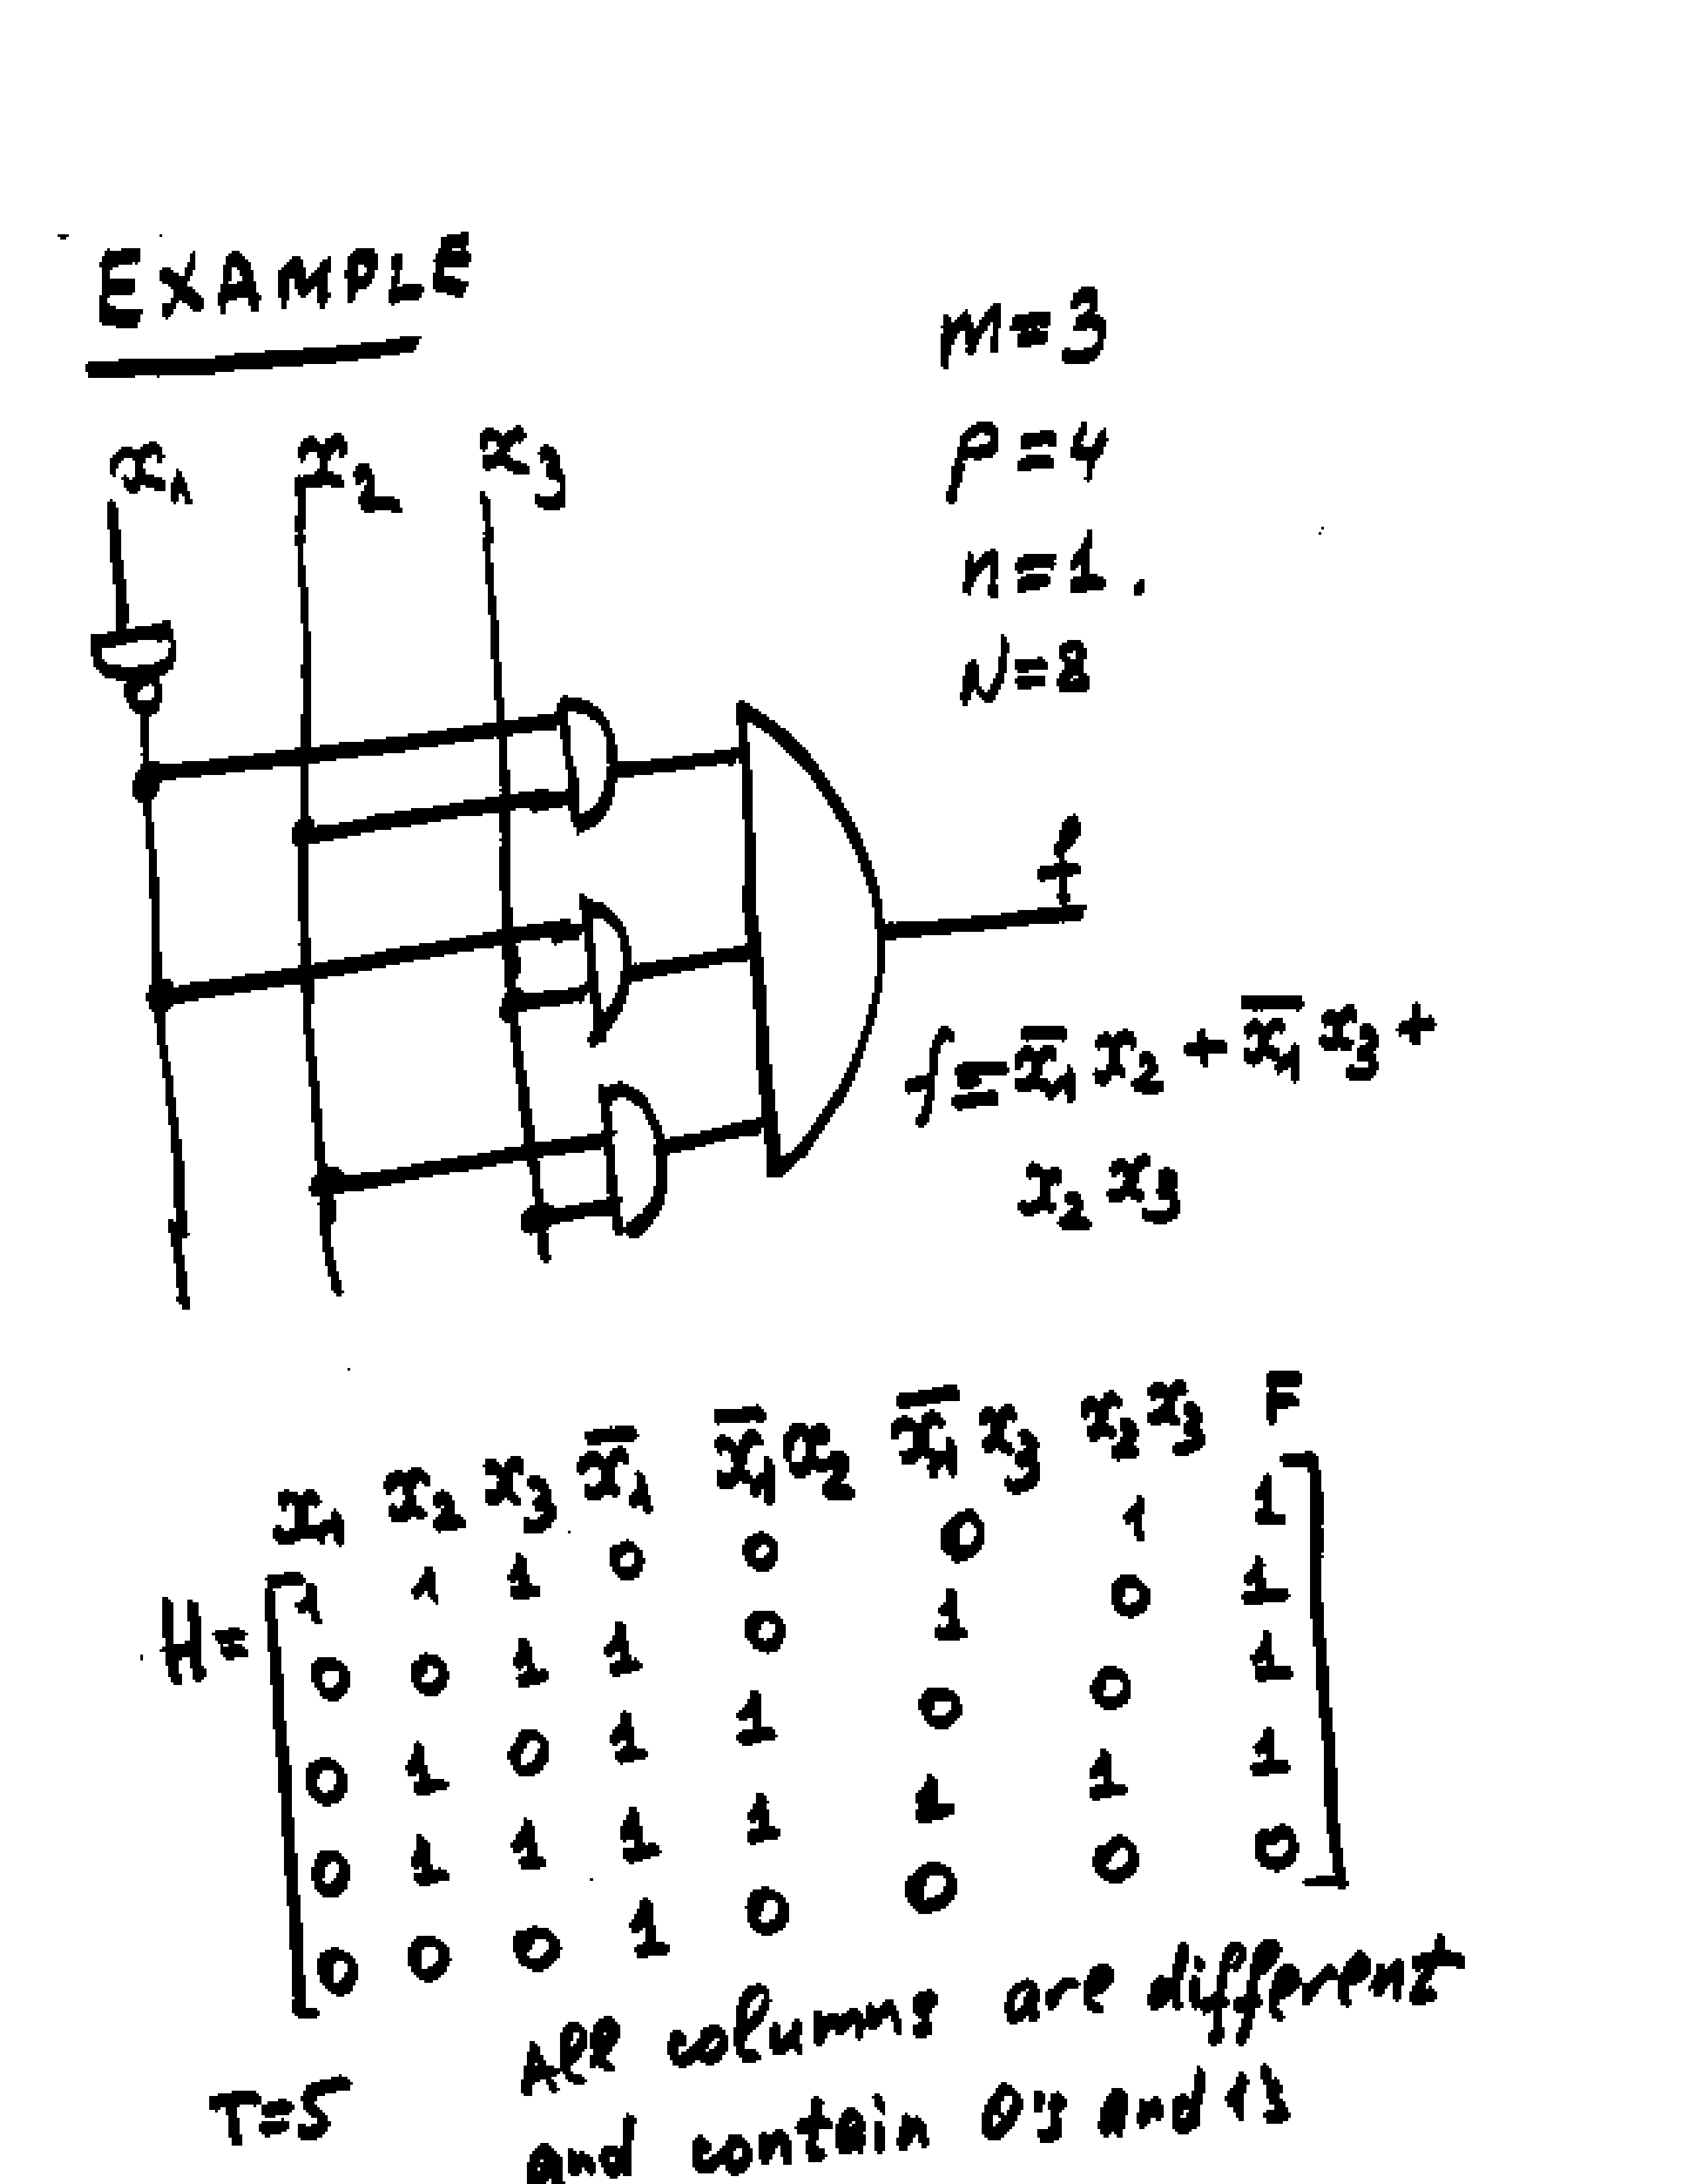 EXAMPLE
m=3
p=4
n=1.
N=8
x₁ x₂ x₃
f
f=x̅₁x₂+x̅₁x₃+
x₂x₃
x₁ x₂ x₃ x̅₁ x̅₁x₂ x̅₁x₃ x₂x₃ F
H= 1 1 1 0 0 0 1 1
0 0 1 1 0 1 0 1
0 1 0 1 1 0 0 1
0 1 1 1 1 1 1 1
0 0 0 1 0 0 0 0
T=5 All columns are different
and contain 0's and 1's